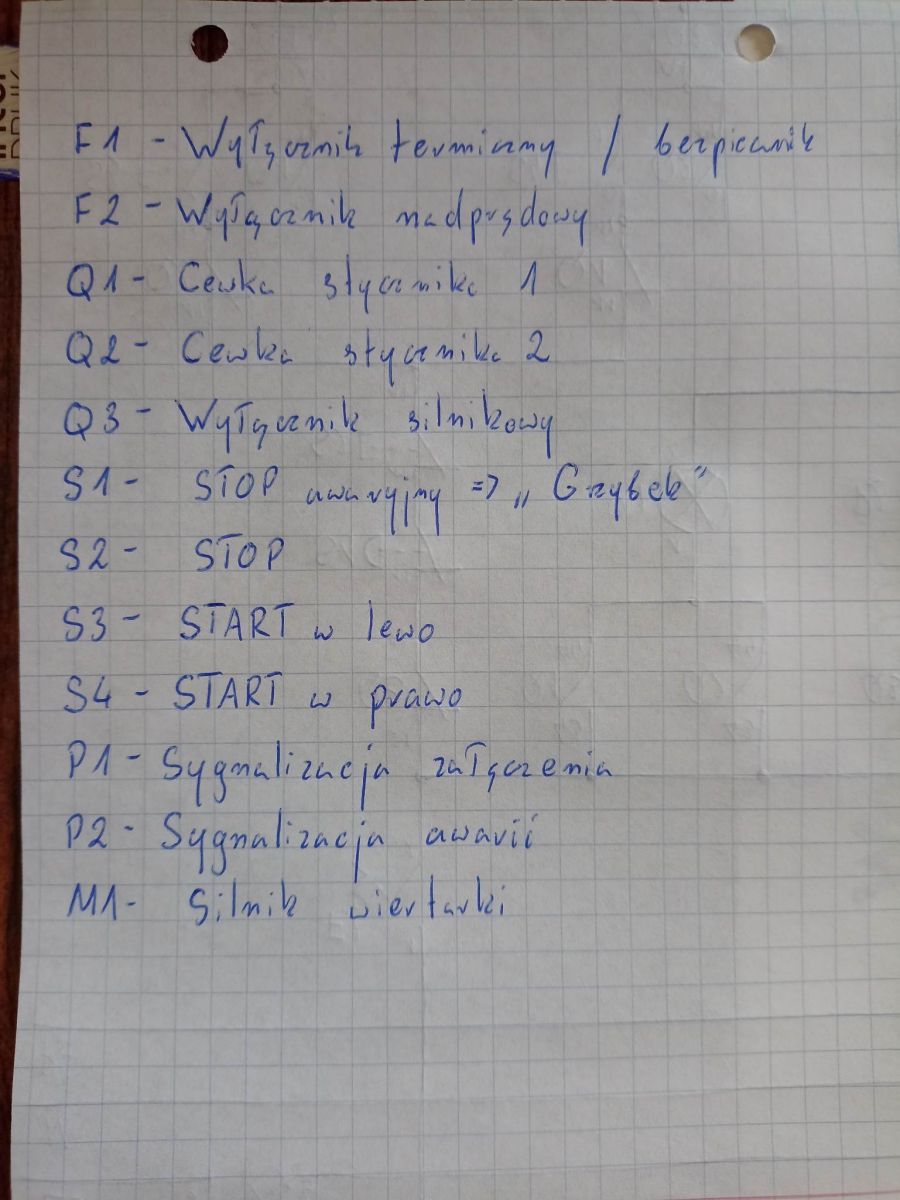 F1 - Wyłącznik termiczny / bezpiecznik
F2 - Wyłącznik nadprądowy
Q1 - Cewka stycznika 1
Q2 - Cewka stycznika 2
Q3 - Wyłącznik silnikowy
S1 - STOP awaryjny => „Grzybek”
S2 - STOP
S3 - START w lewo
S4 - START w prawo
P1 - Sygnalizacja załączenia
P2 - Sygnalizacja awarii
M1 - Silnik wiertarki